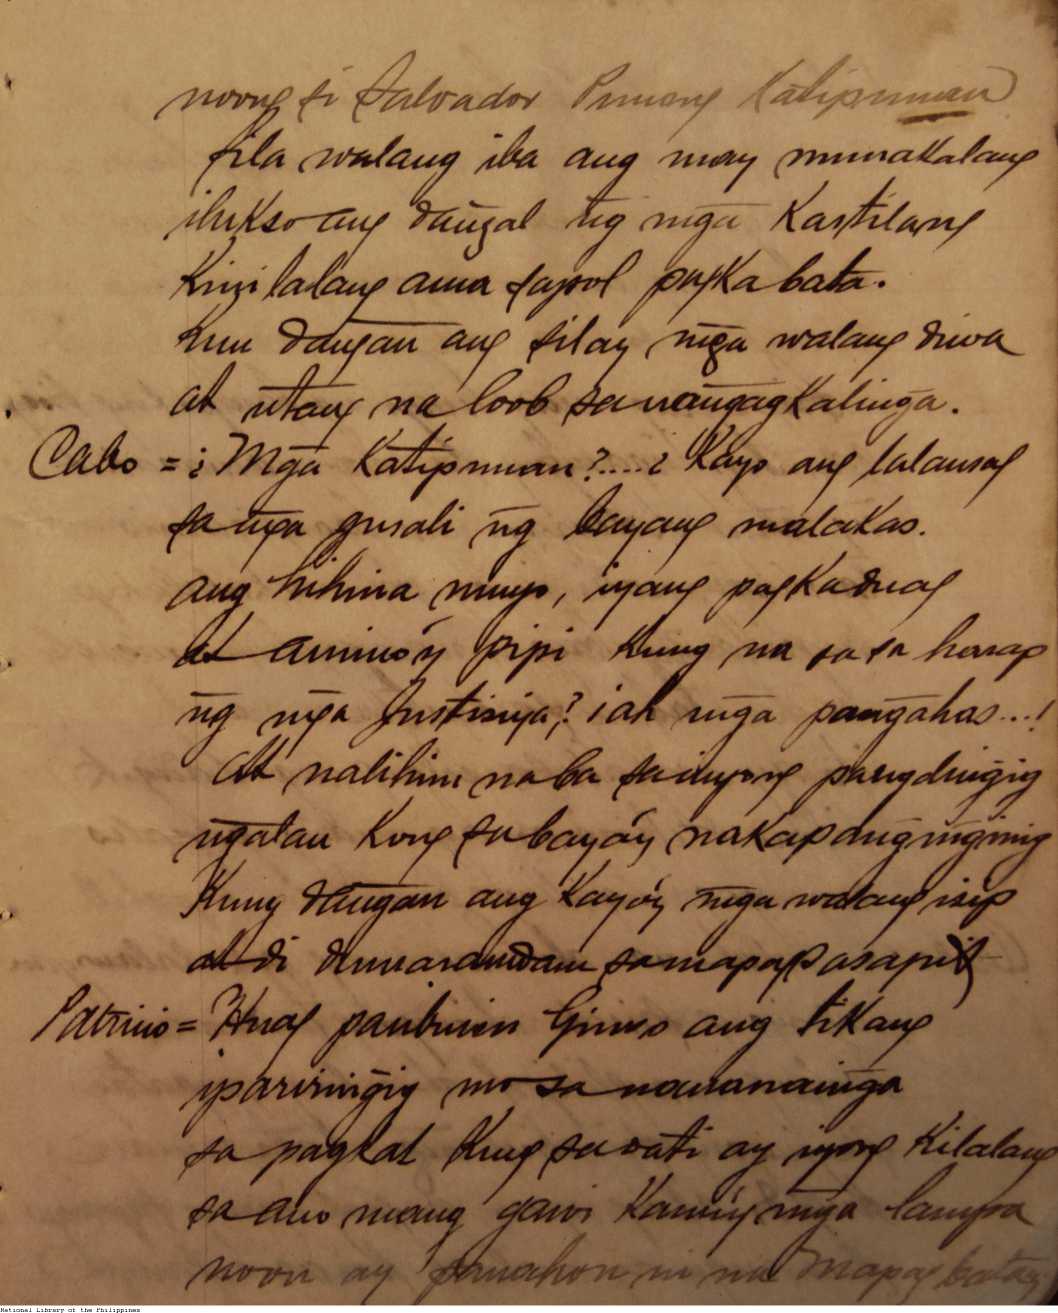 noong si Salvador Punong Katipunan
sila walang iba ang may munakalang
ilukso ang dangal ng̃ mg̃a Kastilang
Kinilalang ama sapol pagka bata.
Kun dang̃an ang silay mg̃a walang diwa
at utang na loob sa nang̃agkaling̃a.
Cabo = ¿Mg̃a Katipunan?....¿ Kayo ang lalansag
sa mg̃a gusali ng̃ bayang malakas.
ang hihina ninyo, iyang pagkaduag
at animo'y pipi kung na sa sa harap
ng̃ mg̃a Justisiya,? ¡ah mg̃a pang̃ahas...!
At nalihim na ba sa inyong pangdinig̃ig
ng̃alan kong sa baya'y nakapang̃ing̃inig
Kung dang̃an ang kayo'y mg̃a walang isip
at di dumaramdam sa mapapasapit
Patricio = Huag panbuisin Ginoo ang tikang
iparirinig̃ig mo sa nananaing̃a
sa pagkat kung sa vati ay inyong Kilalang
sa ano mang gawi Kami'y mg̃a lampa
noon ay panahon ni na Mapag batang